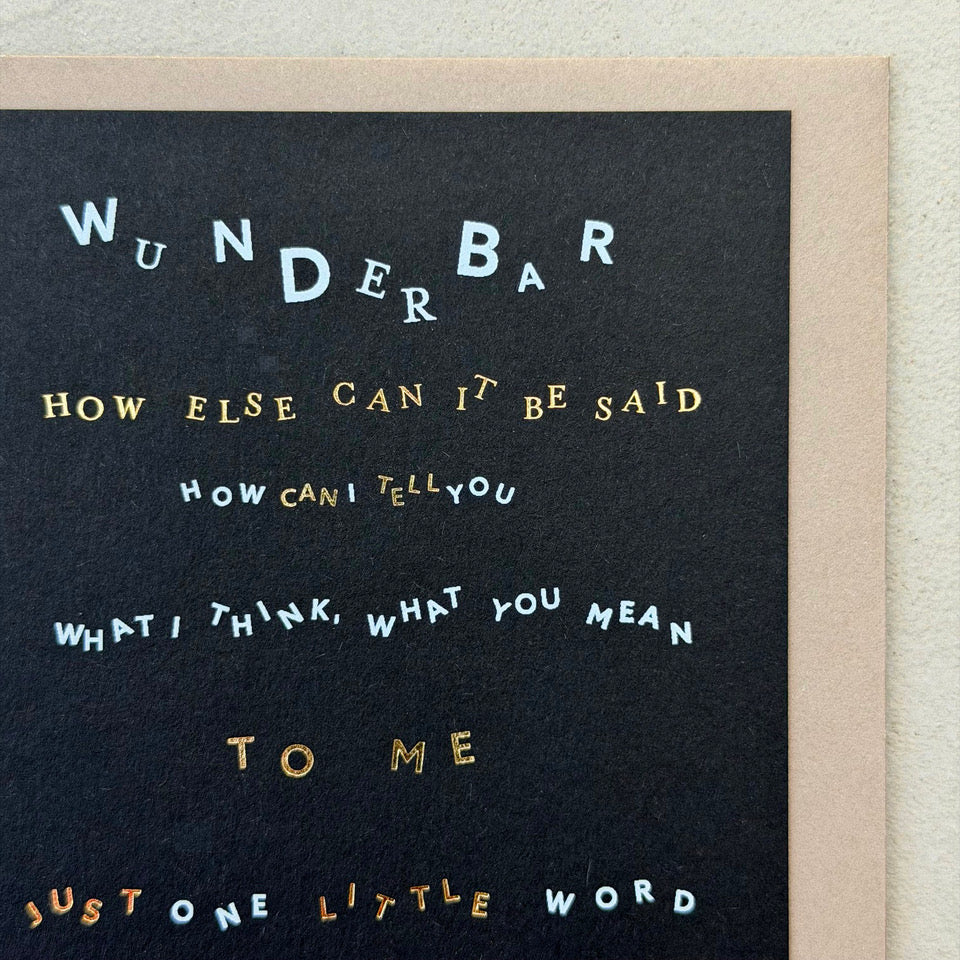 WUNDERBAR
HOW ELSE CAN IT BE SAID
HOW CAN I TELL YOU
WHAT I THINK, WHAT YOU MEAN
TO ME
JUST ONE LITTLE WORD